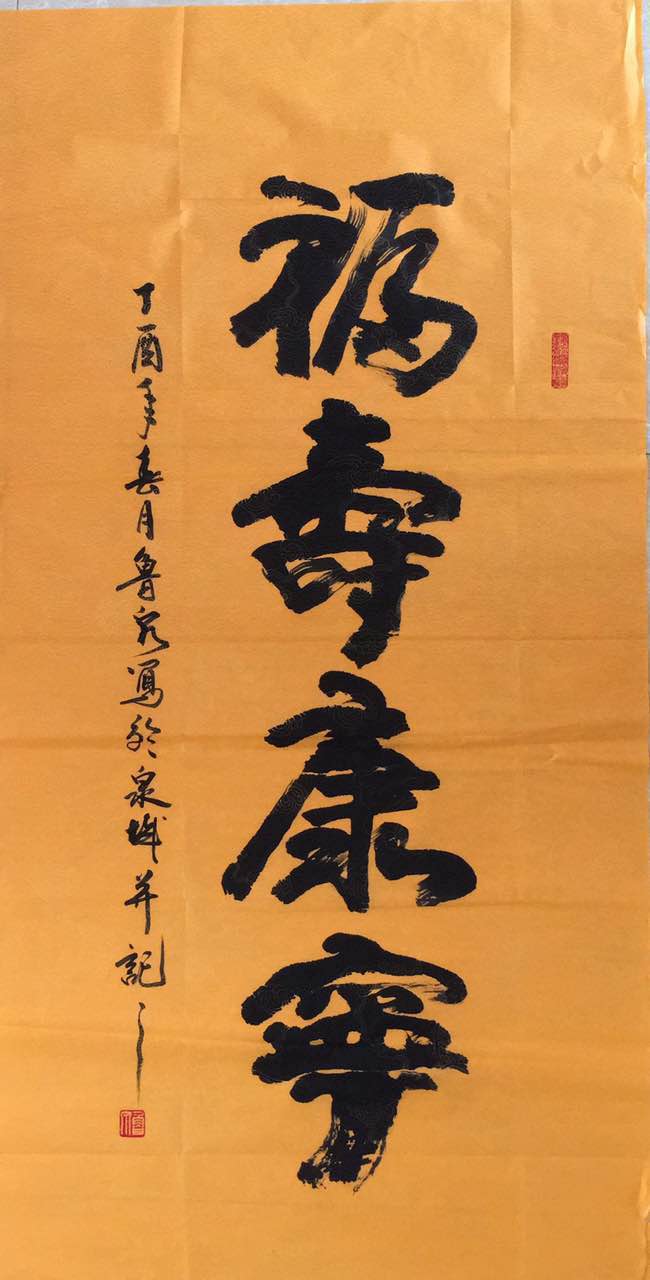 福壽康寧
丁酉年春月魯泉寫於泉城并記之